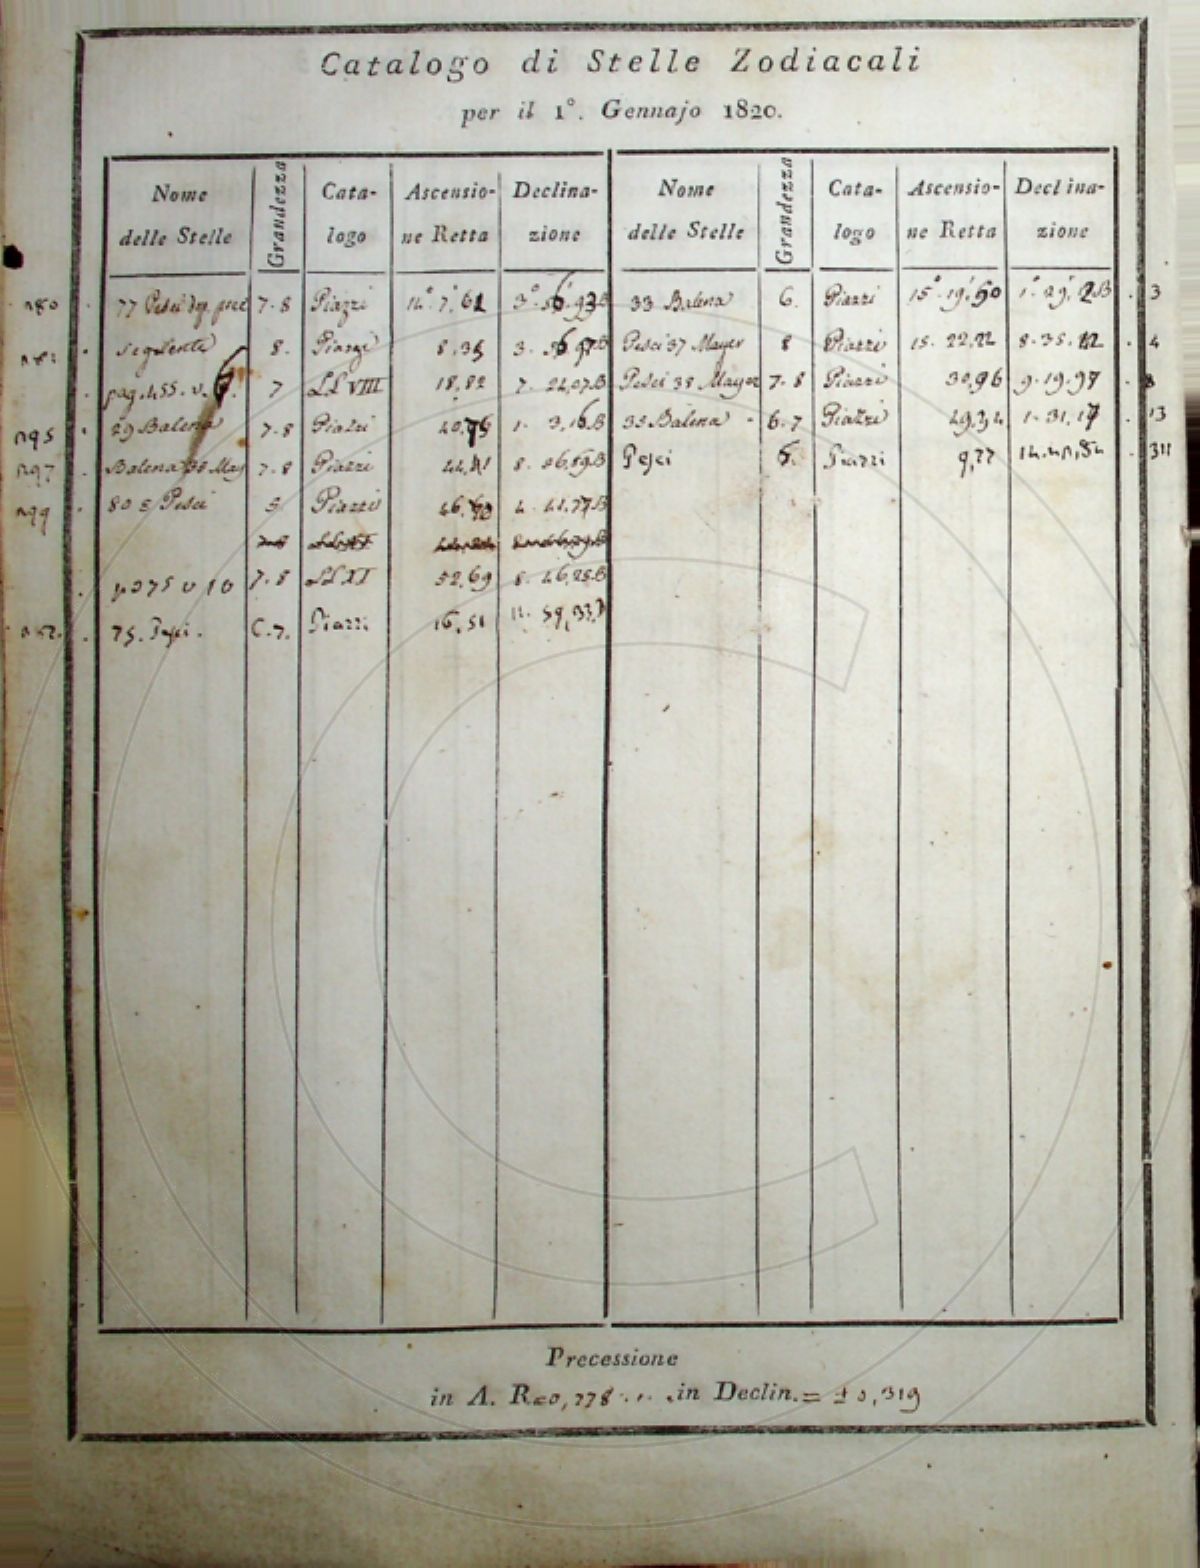 Catalogo di Stelle Zodiacali
per il 1°. Gennajo 1820.
Nome delle Stelle Grandezza Cata-logo Ascensio-ne Retta Declina-zione Nome delle Stelle Grandezza Cata-logo Ascensio-ne Retta Declina-zione
77 Pesci 7.8 Piazzi 14° 7', 61 3° 56', 93 B 33 Balena 6. Piazzi 15° 19', 50 1° 29', 2 B 3
seguente 8. Piazzi 8,35 3. 56,97 B Pesci 37 Mayer 8 Piazzi 15. 22,22 8. 35. 22 4
pag. 455. v. 6. 7 LL VIII 18,82 7. 22,07 B Pesci 38 Mayer 7.8 Piazzi 30,96 9. 19,97 8
29 Balena 7.8 Piazzi 40,75 1. 3,16 B 35 Balena 6.7 Piazzi 49,34 1. 31,17 13
Balena 36 May 7.8 Piazzi 8. 56,69 B Pesci 6. Piazzi 9,77 311
80 e Pesci 5 Piazzi 46,79 4. 41,77 B
p 375 v 10 7.8 LL XI 52,69 8. 26,28 B
75. Pesci. 6.7. Piazzi 16,51 11. 59,33 B
Precessione
in A. R = 0,778 . . . in Declin. = ± 0,319